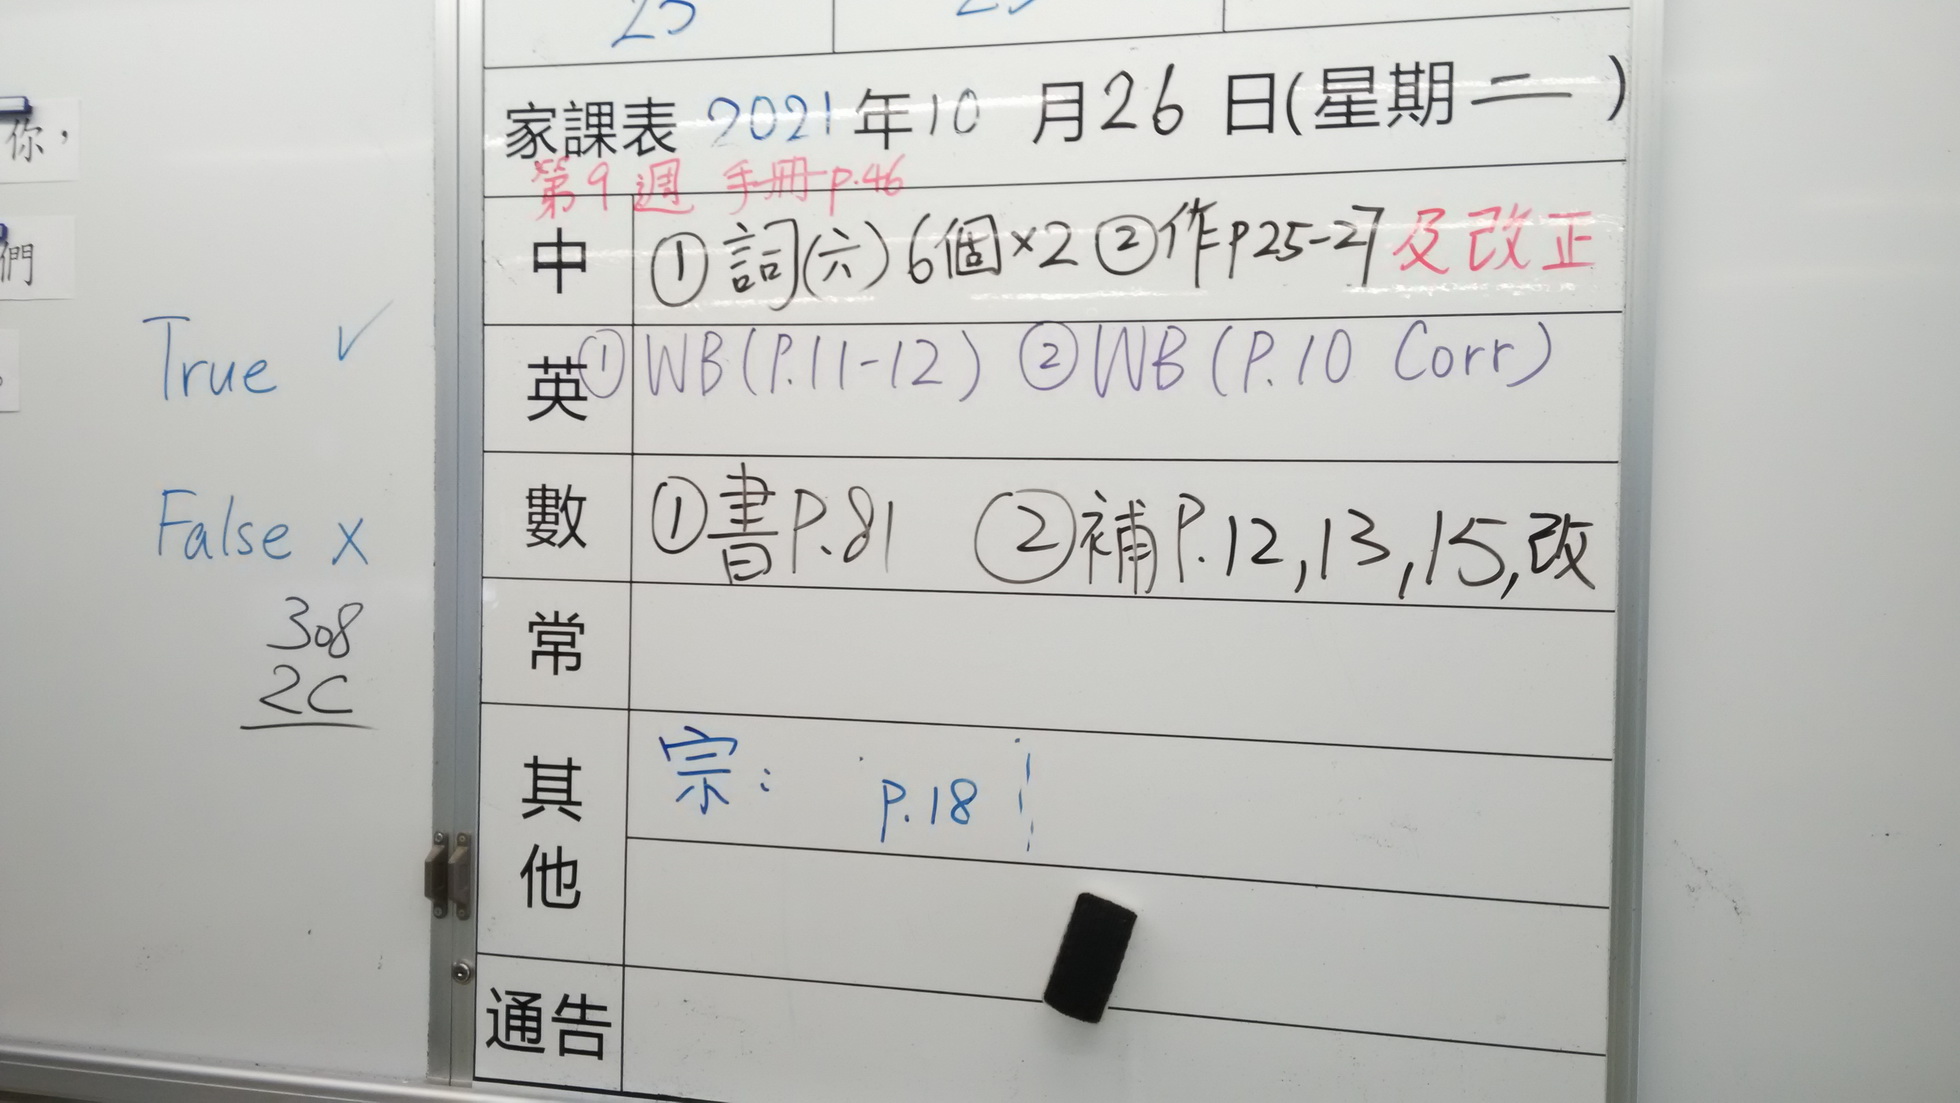 你，
們
True ✓
False x
308
2C
25
家課表 2021年10月26日(星期二)
第9週 手冊p.46
中 ①詞(六)6個×2 ②作p25-27及改正
英 ①WB(P.11-12) ②WB(P.10 Corr)
數 ①書P.81 ②補P.12,13,15,改
常
其他 宗: p.18
通告